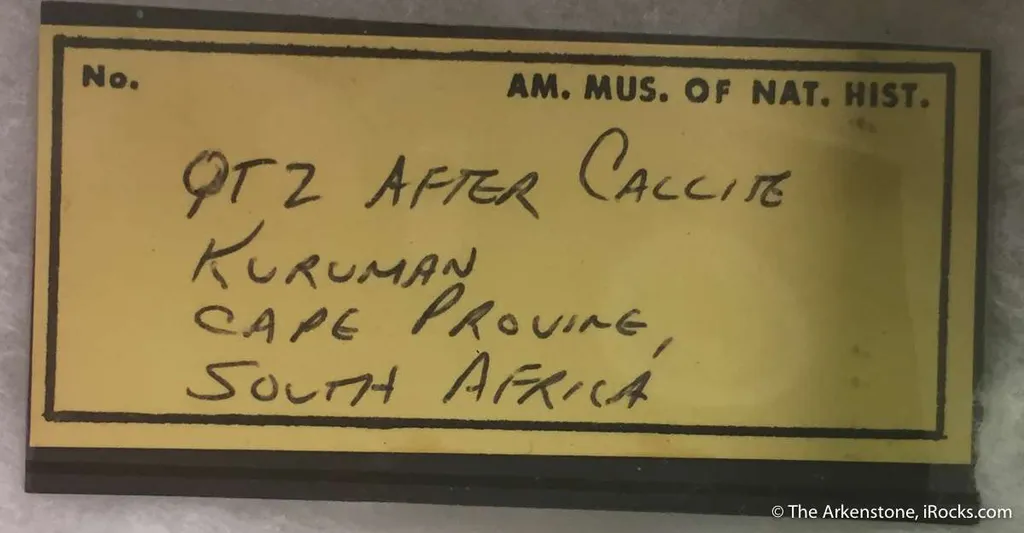 No.
AM. MUS. OF NAT. HIST.
QTZ AFTER CALCITE
KURUMAN
CAPE PROVINE,
SOUTH AFRICA
© The Arkenstone, iRocks.com